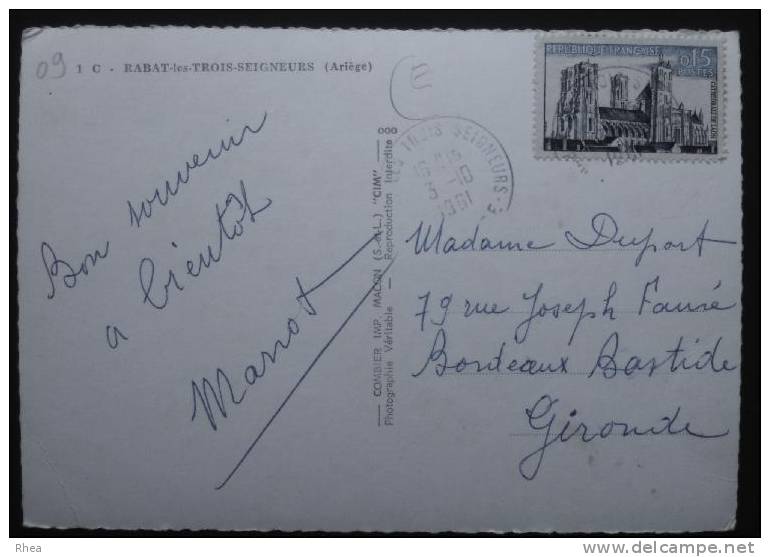 09
1 C - RABAT-les-TROIS-SEIGNEURS (Ariège)
RÉPUBLIQUE FRANÇAISE
0,15
POSTES
CATHÉDRALE DE LAON
TROIS SEIGNEURS
5-10
1961
Bon souvenir
a bientôt
Manot
COMBIER IMP. MACON (S.-et-L.) "CIM"
Photographie Véritable — Reproduction Interdite
Madame Duport
79 rue Joseph Fauré
Bordeaux Bastide
Gironde
Rhea
www.delcampe.net